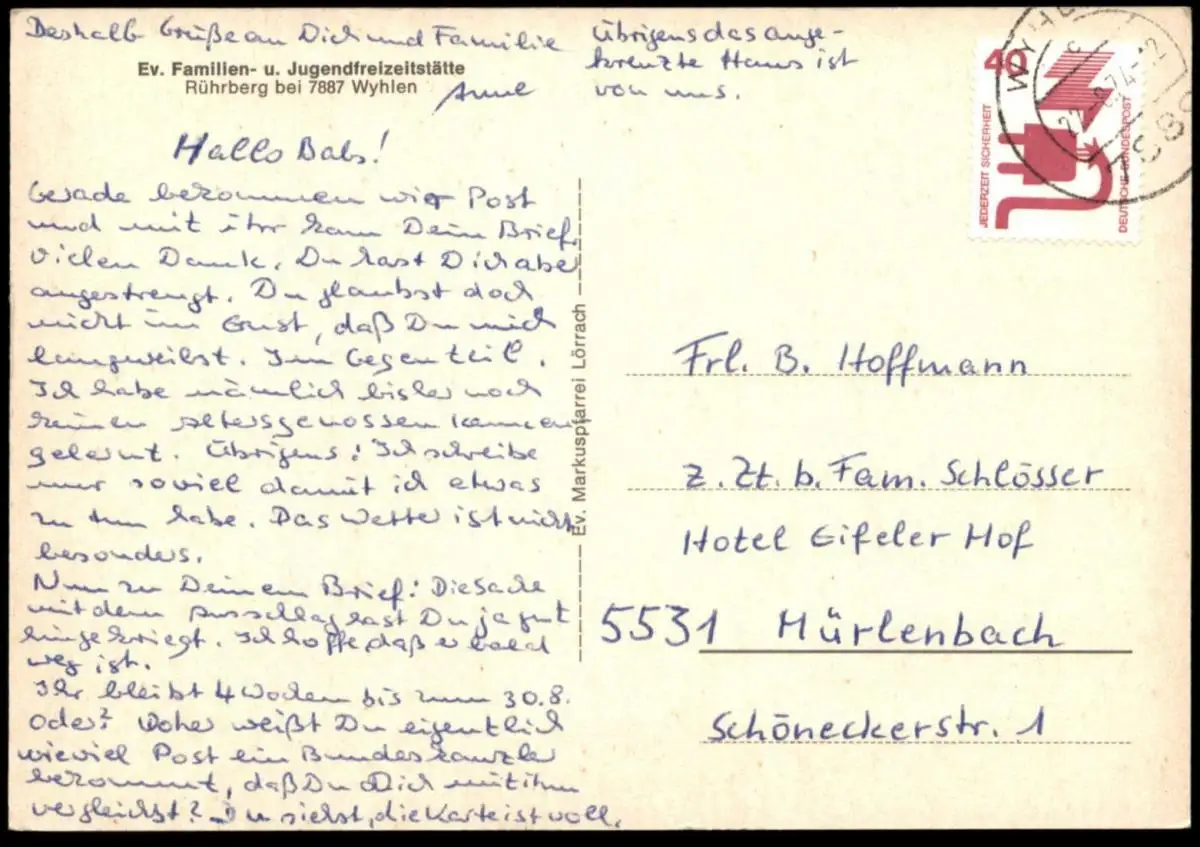 Deshalb Grüße an Dich und Familie
Anne
Übrigens das ange-
kreuzte Haus ist
von uns.
Ev. Familien- u. Jugendfreizeitstätte
Rührberg bei 7887 Wyhlen
Hallo Babs!
Gerade bekommen wir Post
und mit ihr kam Dein Brief.
Vielen Dank. Du hast Dich aber
angestrengt. Du glaubst doch
nicht im Ernst, daß Du mich
langweilst. Im Gegenteil.
Ich habe nämlich bisher noch
keinen Altersgenossen kennen
gelernt. Übrigens: Ich schreibe
nur soviel damit ich etwas
zu tun habe. Das Wetter ist nicht
besonders.
Nun zu Deinem Brief: Die Sache
mit dem Ausschlag hast Du ja gut
hingekriegt. Ich hoffe, daß er bald
weg ist.
Ihr bleibt 4 Wochen bis zum 30.8.
Oder? Woher weißt Du eigentlich
wieviel Post ein Bundeskanzler
bekommt, daß Du Dich mit ihm
vergleichst? Du siehst, die Karte ist voll.
Ev. Markuspfarrei Lörrach
40
JEDERZEIT SICHERHEIT
DEUTSCHE BUNDESPOST
22.-8.74-12
7887
Frl. B. Hoffmann
z. Zt. b. Fam. Schlösser
Hotel Eifeler Hof
5531 Mürlenbach
Schöneckerstr. 1